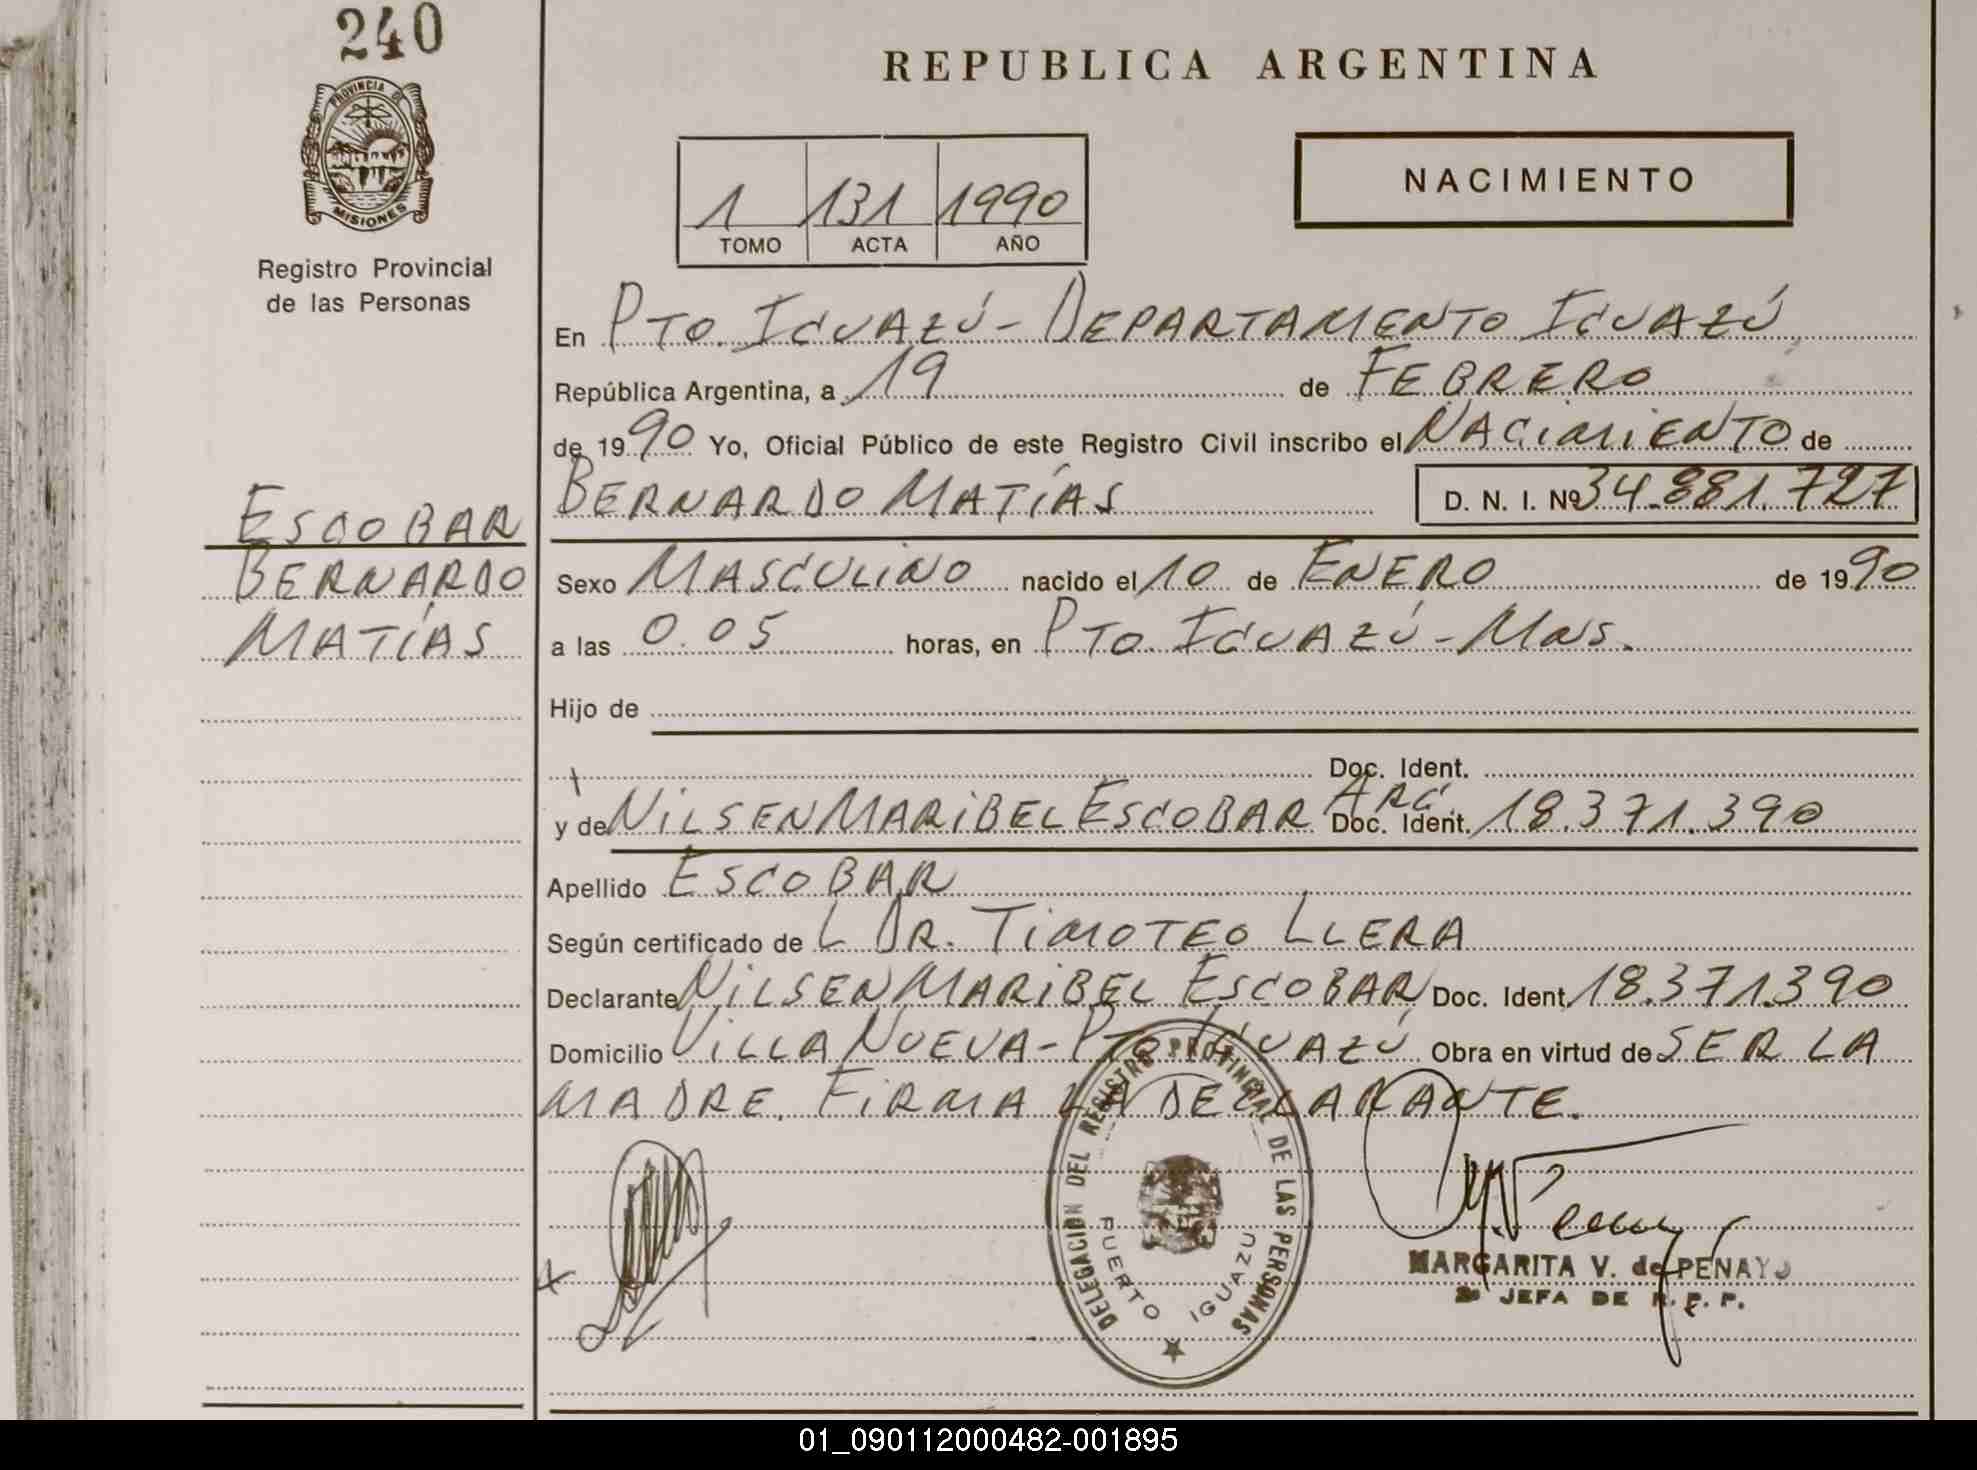 240
PROVINCIA DE
MISIONES
Registro Provincial
de las Personas
ESCOBAR
BERNARDO
MATÍAS
REPUBLICA ARGENTINA
1 131 1990
TOMO ACTA AÑO
NACIMIENTO
En PTO. IGUAZÚ - DEPARTAMENTO IGUAZÚ
República Argentina, a 19 de FEBRERO
de 1990 Yo, Oficial Público de este Registro Civil inscribo el NACIMIENTO de
BERNARDO MATÍAS D. N. I. Nº 34.881.727
Sexo MASCULINO nacido el 10 de ENERO de 1990
a las 0.05 horas, en PTO. IGUAZÚ - Mns.
Hijo de
Doc. Ident.
y de NILSEN MARIBEL ESCOBAR ARG. Doc. Ident. 18.371.390
Apellido ESCOBAR
Según certificado de L DR. TIMOTEO LLERA
Declarante NILSEN MARIBEL ESCOBAR Doc. Ident. 18.371.390
Domicilio VILLA NUEVA - PTO IGUAZÚ Obra en virtud de SER LA
MADRE. FIRMA LA DECLARANTE.
DELEGACION DEL REGISTRO PROVINCIAL DE LAS PERSONAS
PUERTO IGUAZU
MARGARITA V. de PENAYO
2º JEFA DE R. P. P.
01_090112000482-001895